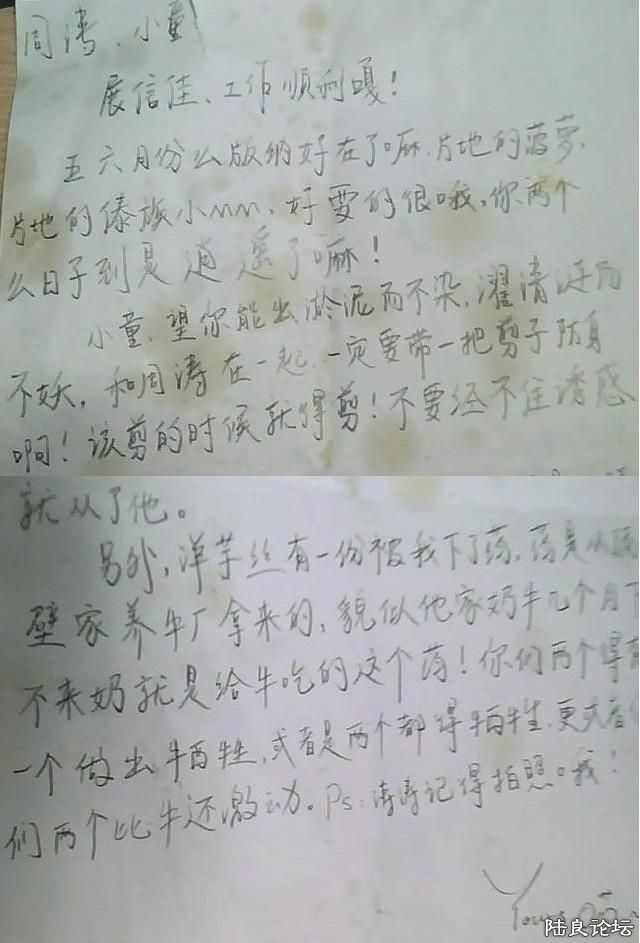 周涛、小童
展信佳、工作顺利嘎！
五六月份么版纳好在了嘛.片地的菠萝.
片地的傣族小mm.好耍的很哦.你两个
么日子到是逍遥了嘛！
小童.望你能出淤泥而不染.濯清涟而
不妖.和周涛在一起.一定要带一把剪子防身
啊！该剪的时候就得剪！不要经不住诱惑
就从了他。
另外，洋芋丝有一份被我下了药.药是从隔
壁家养牛厂拿来的，貌似他家奶牛几个月下
不来奶就是给牛吃的这个药！你们两个得有
一个做出牺牲.或者是两个都得牺牲.更或者
们两个比牛还激动。Ps:涛涛记得拍照哦！
Yours
陆良论坛